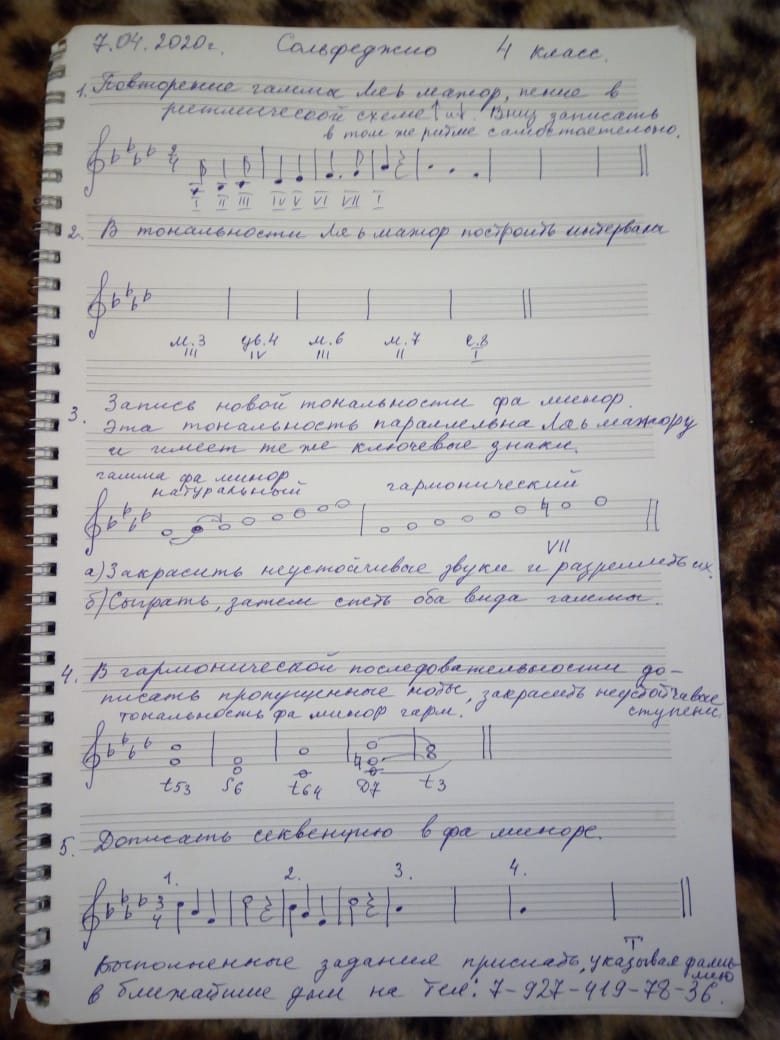 7.04.2020г. Сольфеджио 4 класс.
1. Повторение гаммы Ля ь мажор, пение в
ритмической схеме ↑ и ↓. Вниз записать
в том же ритме самостоятельно.
2 4
I II III IV V VI VII I
2. В тональности Ля ь мажор построить интервалы
м.3 ув.4 м.6 м.7 ч.8
III IV III II I
3. Запись новой тональности фа минор.
Эта тональность параллельна Ля ь мажору
и имеет те же ключевые знаки.
гамма фа минор
натуральный гармонический
VII
а) Закрасить неустойчивые звуки и разрешить их.
б) Сыграть, затем спеть оба вида гаммы.
4. В гармонической последовательности до-
писать пропущенные ноты, закрасить неустойчивые
тональность фа минор гарм. ступени.
t53 S6 t64 D7 t3
5. Дописать секвенцию в фа миноре.
1. 2. 3. 4.
3 4
T
Выполненные задания прислать, указывая фами-
лию
в ближайшие дни на тел: 7-927-419-78-36.